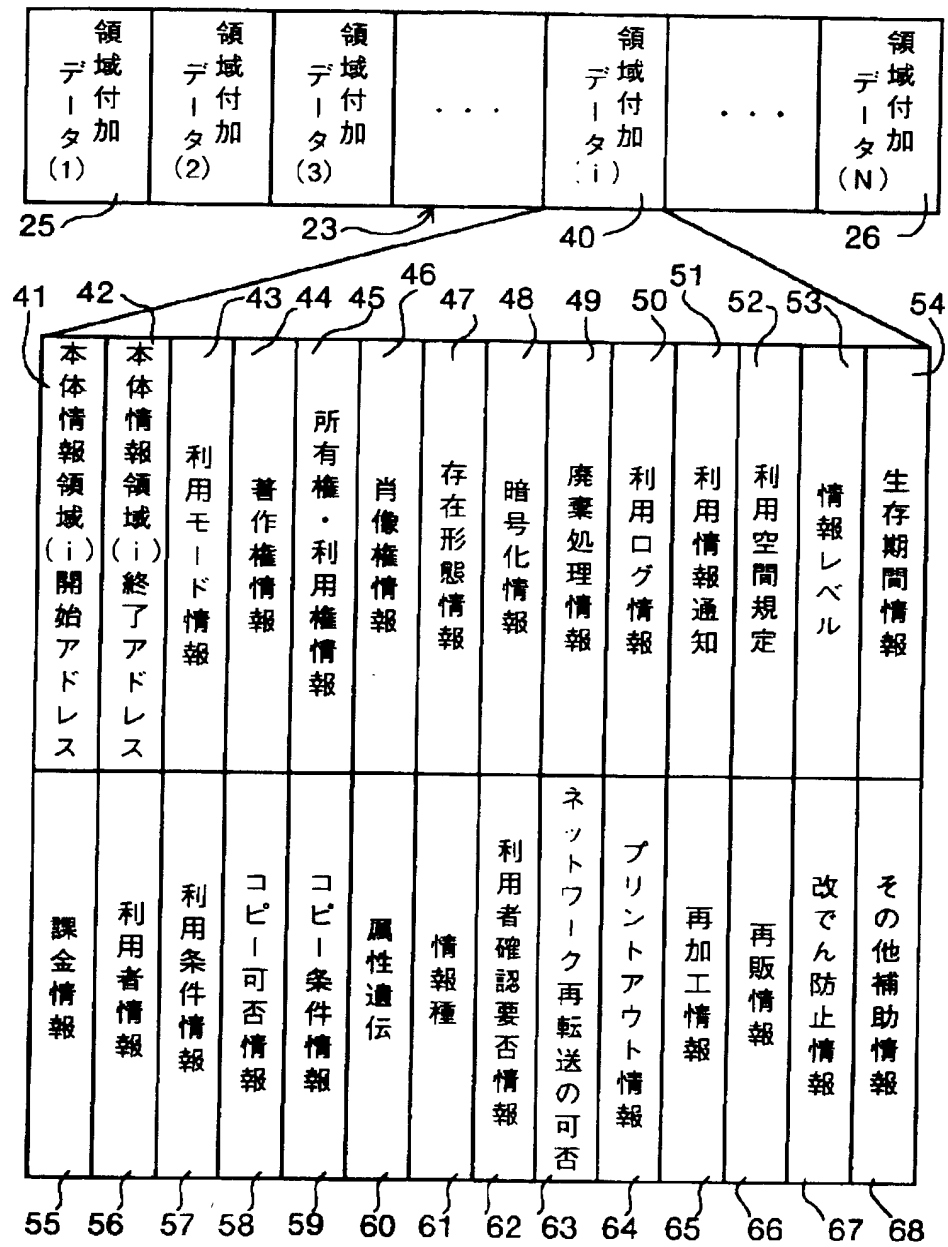 領域付加データ(1)
領域付加データ(2)
領域付加データ(3)
・・・
領域付加データ(i)
・・・
領域付加データ(N)
25
23
40
26
41
42
43
44
45
46
47
48
49
50
51
52
53
54
本体情報領域(i)開始アドレス
本体情報領域(i)終了アドレス
利用モード情報
著作権情報
所有権・利用権情報
肖像権情報
存在形態情報
暗号化情報
廃棄処理情報
利用ログ情報
利用情報通知
利用空間規定
情報レベル
生存期間情報
課金情報
利用者情報
利用条件情報
コピー可否情報
コピー条件情報
属性遺伝
情報種
利用者確認要否情報
ネットワーク再転送の可否
プリントアウト情報
再加工情報
再販情報
改でん防止情報
その他補助情報
55
56
57
58
59
60
61
62
63
64
65
66
67
68